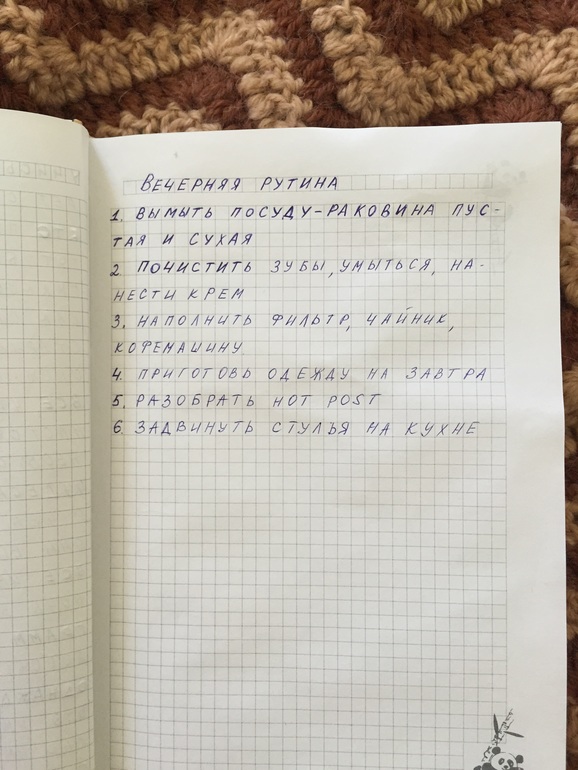 ВЕЧЕРНЯЯ РУТИНА
1. ВЫМЫТЬ ПОСУДУ-РАКОВИНА ПУС-
ТАЯ И СУХАЯ
2. ПОЧИСТИТЬ ЗУБЫ, УМЫТЬСЯ, НА-
НЕСТИ КРЕМ
3. НАПОЛНИТЬ ФИЛЬТР, ЧАЙНИК,
КОФЕМАШИНУ
4. ПРИГОТОВЬ ОДЕЖДУ НА ЗАВТРА
5. РАЗОБРАТЬ HOT POST
6. ЗАДВИНУТЬ СТУЛЬЯ НА КУХНЕ